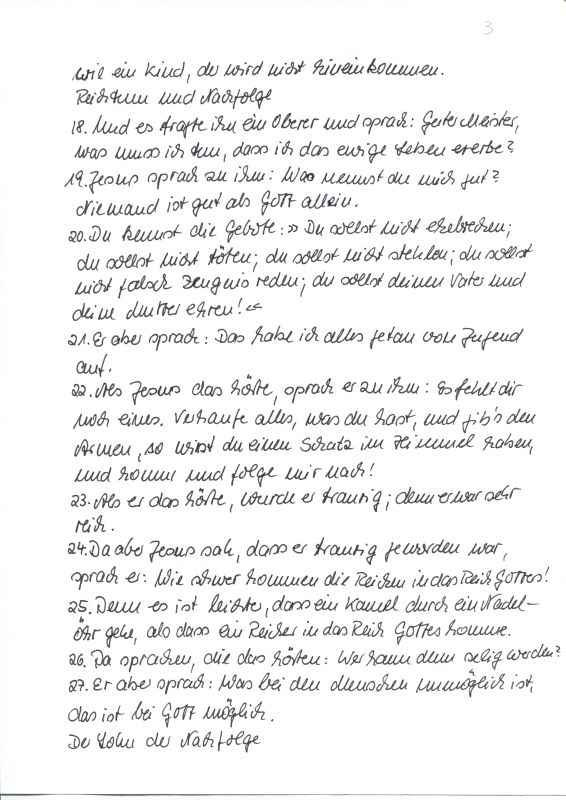 3
wie ein Kind, der wird nicht hineinkommen.
Reichtum und Nachfolge
18. Und es fragte ihn ein Oberer und sprach: Guter Meister,
was muss ich tun, dass ich das ewige Leben ererbe?
19. Jesus sprach zu ihm: Was nennst du mich gut?
Niemand ist gut als Gott allein.
20. Du kennst die Gebote: »Du sollst nicht ehebrechen;
du sollst nicht töten; du sollst nicht stehlen; du sollst
nicht falsch Zeugnis reden; du sollst deinen Vater und
deine Mutter ehren!«
21. Er aber sprach: Das habe ich alles getan von Jugend
auf.
22. Als Jesus das hörte, sprach er zu ihm: Es fehlt dir
noch eines. Verkaufe alles, was du hast, und gib's den
Armen, so wirst du einen Schatz im Himmel haben,
und komm und folge mir nach!
23. Als er das hörte, wurde er traurig; denn er war sehr
reich.
24. Da aber Jesus sah, dass er traurig geworden war,
sprach er: Wie schwer kommen die Reichen in das Reich Gottes!
25. Denn es ist leichter, dass ein Kamel durch ein Nadel-
öhr gehe, als dass ein Reicher in das Reich Gottes komme.
26. Da sprachen, die das hörten: Wer kann dann selig werden?
27. Er aber sprach: Was bei den Menschen unmöglich ist,
das ist bei Gott möglich.
Der Lohn der Nachfolge